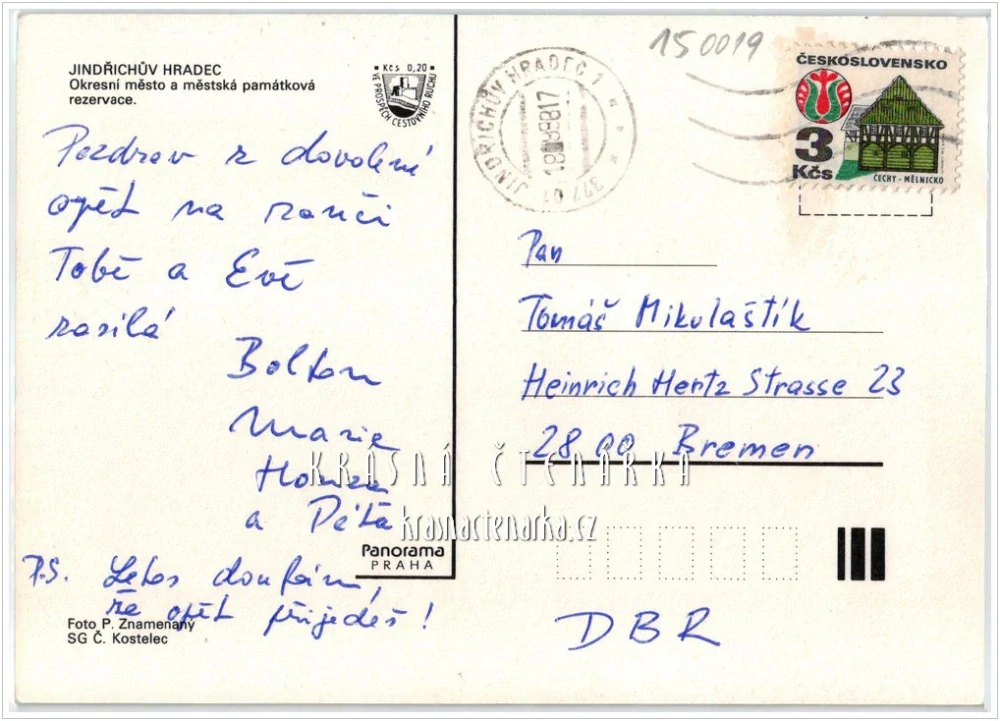 150019
JINDŘICHŮV HRADEC
Okresní město a městská památková
rezervace.
Kčs 0,20
VE PROSPĚCH CESTOVNÍHO RUCHU
JINDŘICHŮV HRADEC 1
377 01
ČESKOSLOVENSKO
3
Kčs
ČECHY - MĚLNICKO
Pozdrav z dovolené
opět na ranči
Tobě a Evě
zasílá
Bolton
Marie
Honza
a Péťa
P.S. Letos doufám,
že opět přijedeš!
Pan
Tomáš Mikulaštík
Heinrich Hertz Strasse 23
2800 Bremen
DBR
KRÁSNÁ ČTENÁŘKA
krasnactenarka.cz
Panorama
PRAHA
Foto P. Znamenaný
SG Č. Kostelec